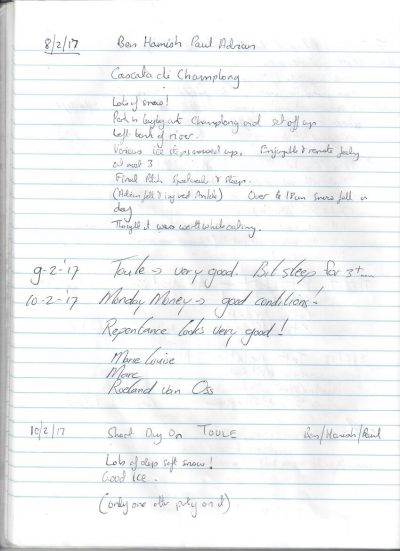 8/2/17 Ben Hamish Paul Adrian
Cascata di Champlong
Lots of snow!
Park in layby at Champlong and set off up
left bank of river.
Various ice steps snowed up. Enjoyable & remote feeling
3
Final Pitch & steep.
(Adrian fell & injured Ankle) Over snow fall in
day
Thought it was worthwhile
9-2-'17 Toule → very good. Bit steep for 3+....
10-2-'17 Monday Money → good conditions!
Repentance looks very good!
Marie Louise
Marc
Roeland van Oss
10/2/17 Short Day On TOULE Ben/Hamish/Paul
Lots of deep soft snow!
Good Ice.
(only one other party on it).